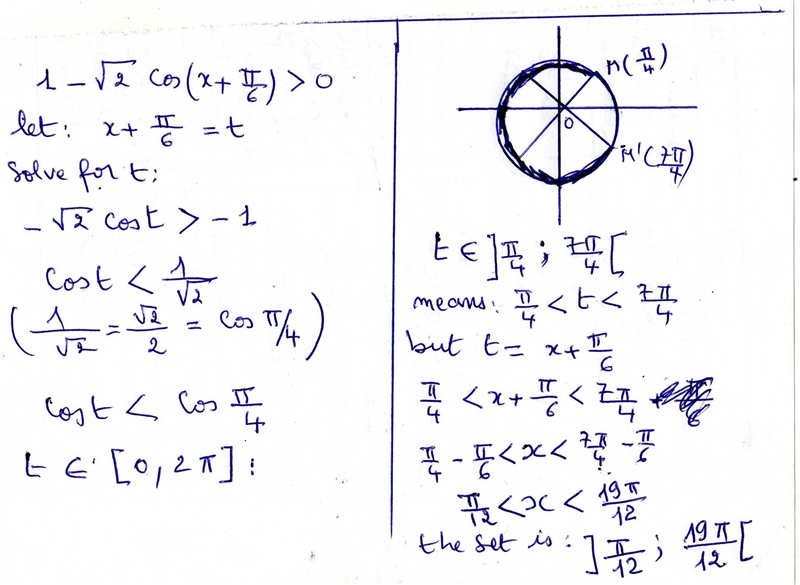 1 - √2 cos(x + π/6) > 0
let: x + π/6 = t
Solve for t:
- √2 cost > - 1
cost < 1/√2
(1/√2 = √2/2 = cos π/4)
cost < cos π/4
t ∈ [0, 2π]:
M(π/4)
O
M'(7π/4)
t ∈ ]π/4 ; 7π/4[
means: π/4 < t < 7π/4
but t = x + π/6
π/4 < x + π/6 < 7π/4
π/4 - π/6 < x < 7π/4 - π/6
π/12 < x < 19π/12
the set is: ]π/12 ; 19π/12[